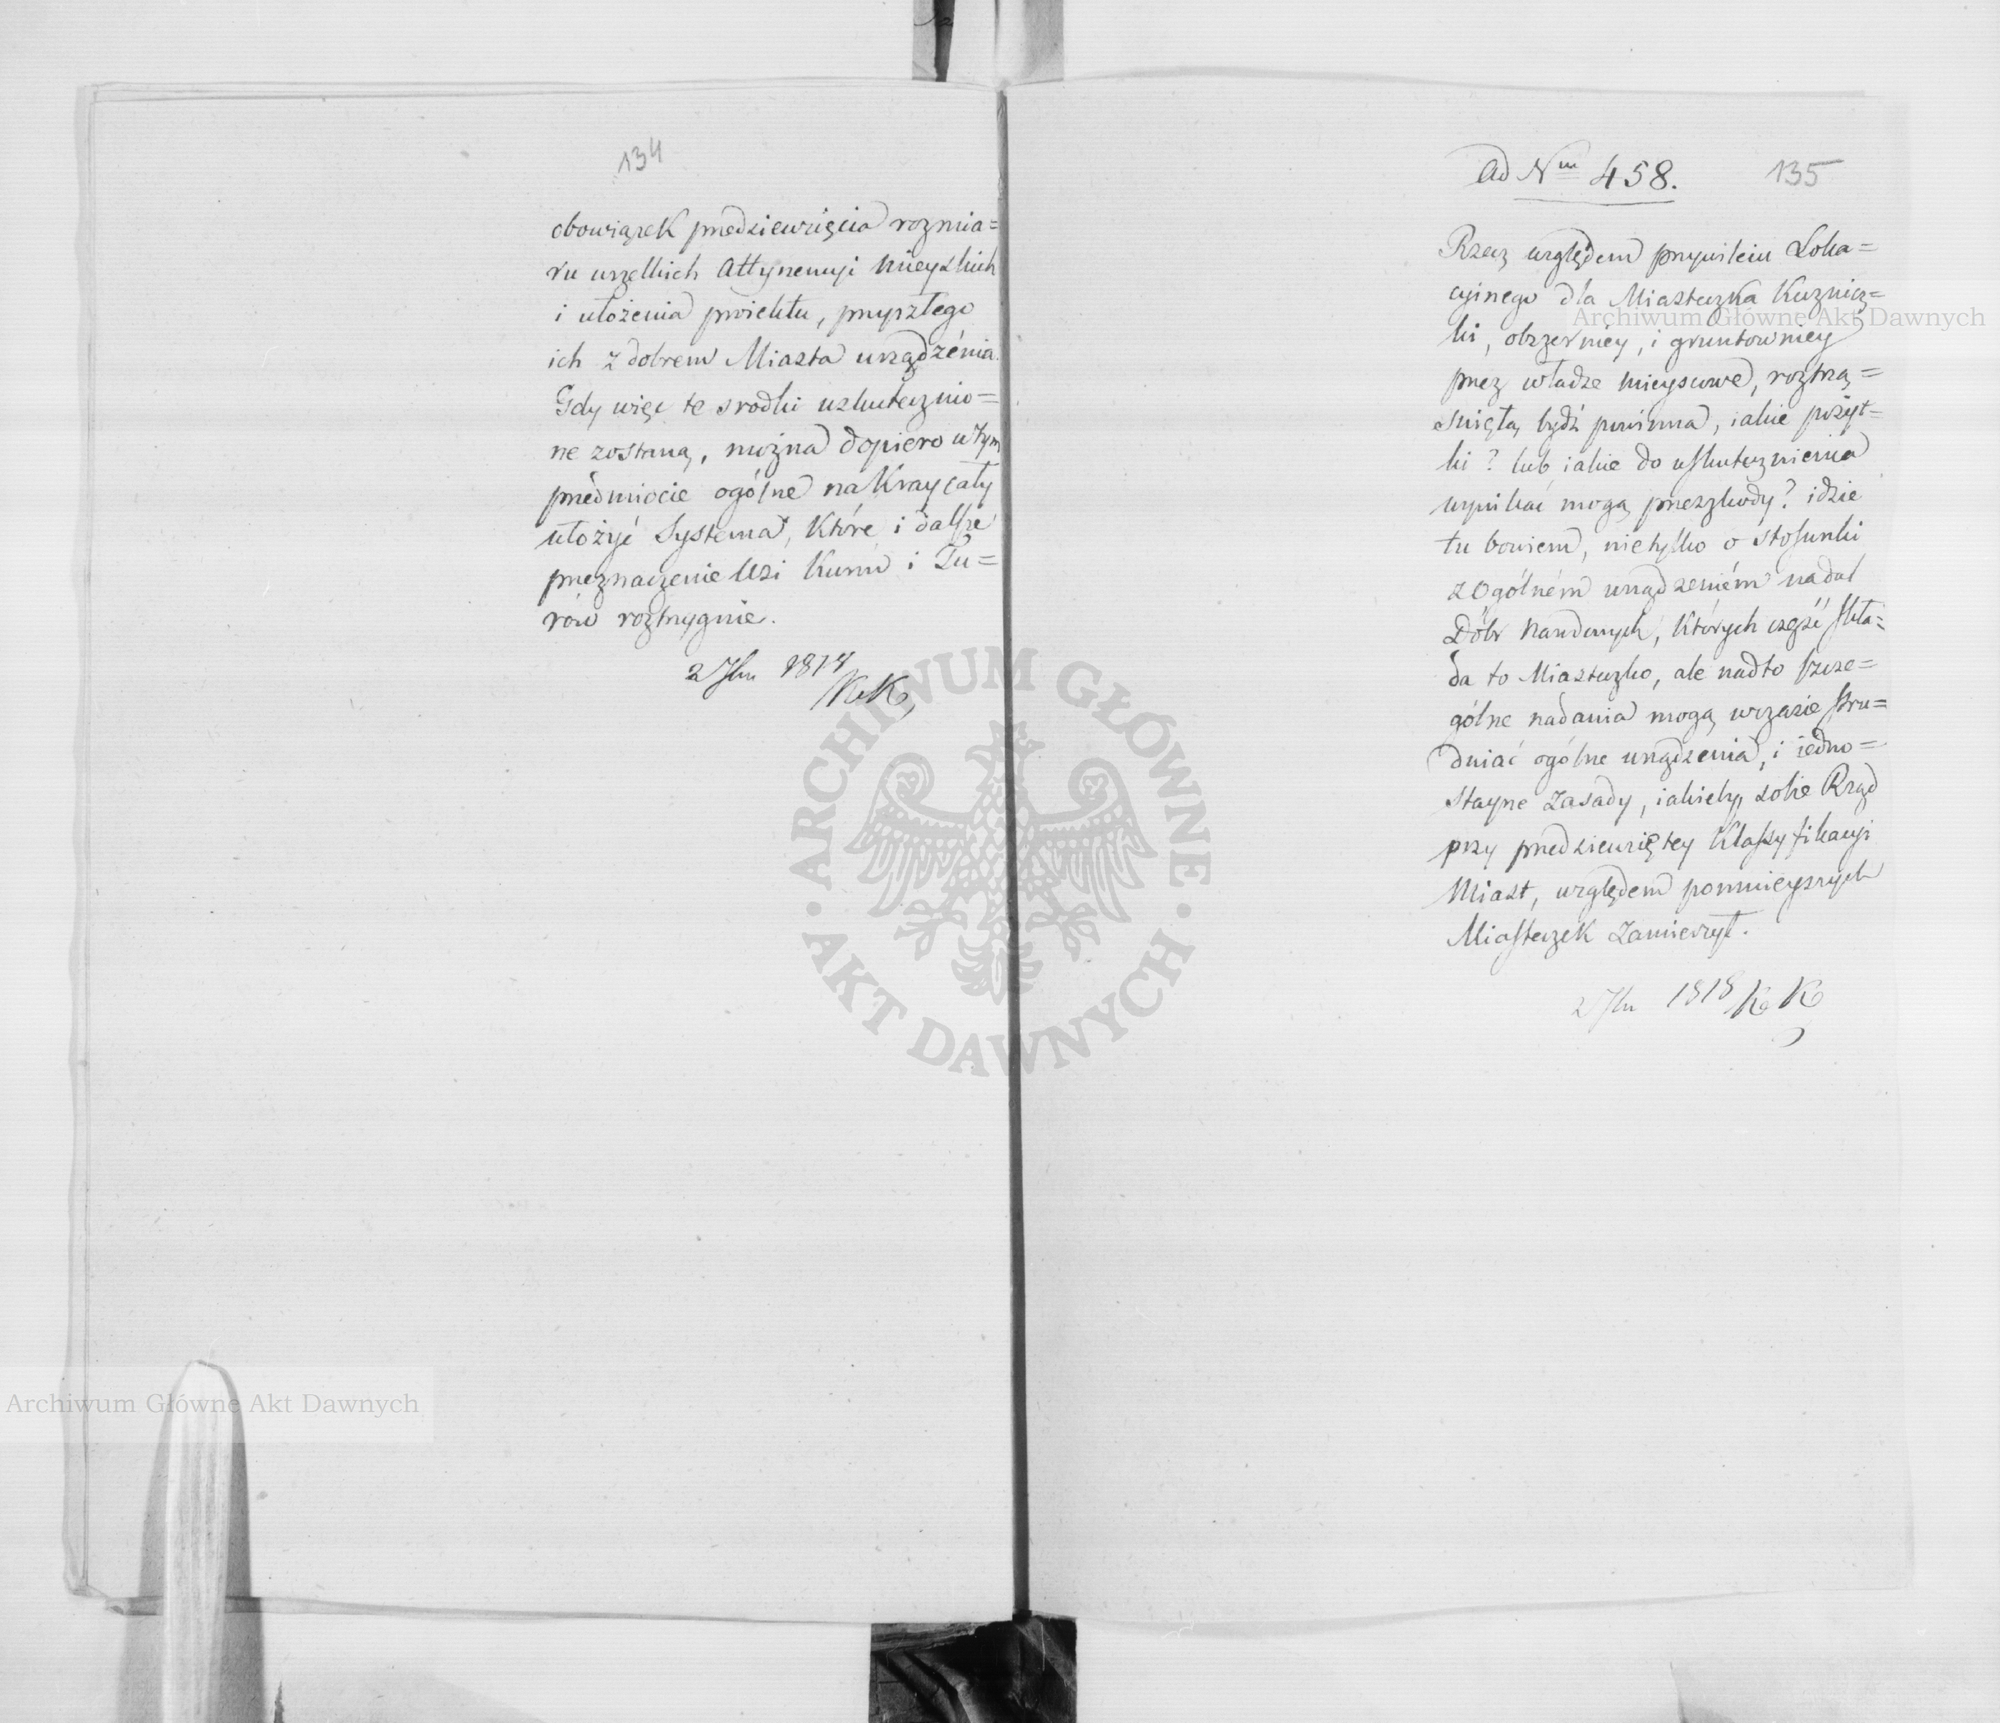 134
obowiązek przedziewzięcia rozmia=
ru wszelkich Attynencyi Mieyskich
i ułożenia proiektu, przyszłego
ich z dobrem Miasta urządzenia.
Gdy więc te srodki uskutecznio=
ne zostaną, można dopiero w tym
przedmiocie ogólne na Kray cały
ułożyć Systema, Które i dalsze
przeznaczenie Wsi Kurów i Tu=
rów roztrzygnie.
1818
KK
Ad Nm 458.
135
Rzecz względem przywileiu Loka=
cyinego dla Miasteczka Kuznicz=
ki, obszerniey, i gruntowniey
przez władze mieyscowe, roztrzą=
śnięta bydź powinna, iakie pożyt=
ki? lub iakie do uskutecznienia
wynikać mogą przeszkody? idzie
tu bowiem, nietylko o stosunki
z ogólném urządzeniém nadal
Dóbr Narodowych, Których część skła=
da to Miasteczko, ale nadto szcze=
gólne nadania mogą wczasie stru=
dniać ogólne urządzenia, i iedno=
stayne zasady, iakieby sobie Rząd
przy przedziewziętey Klassyfikacyi
Miast, względem pomnieyszych
Miasteczek zamierzył.
1818 KK
Archiwum Główne Akt Dawnych
ARCHIWUM GŁÓWNE
AKT DAWNYCH
Archiwum Główne Akt Dawnych